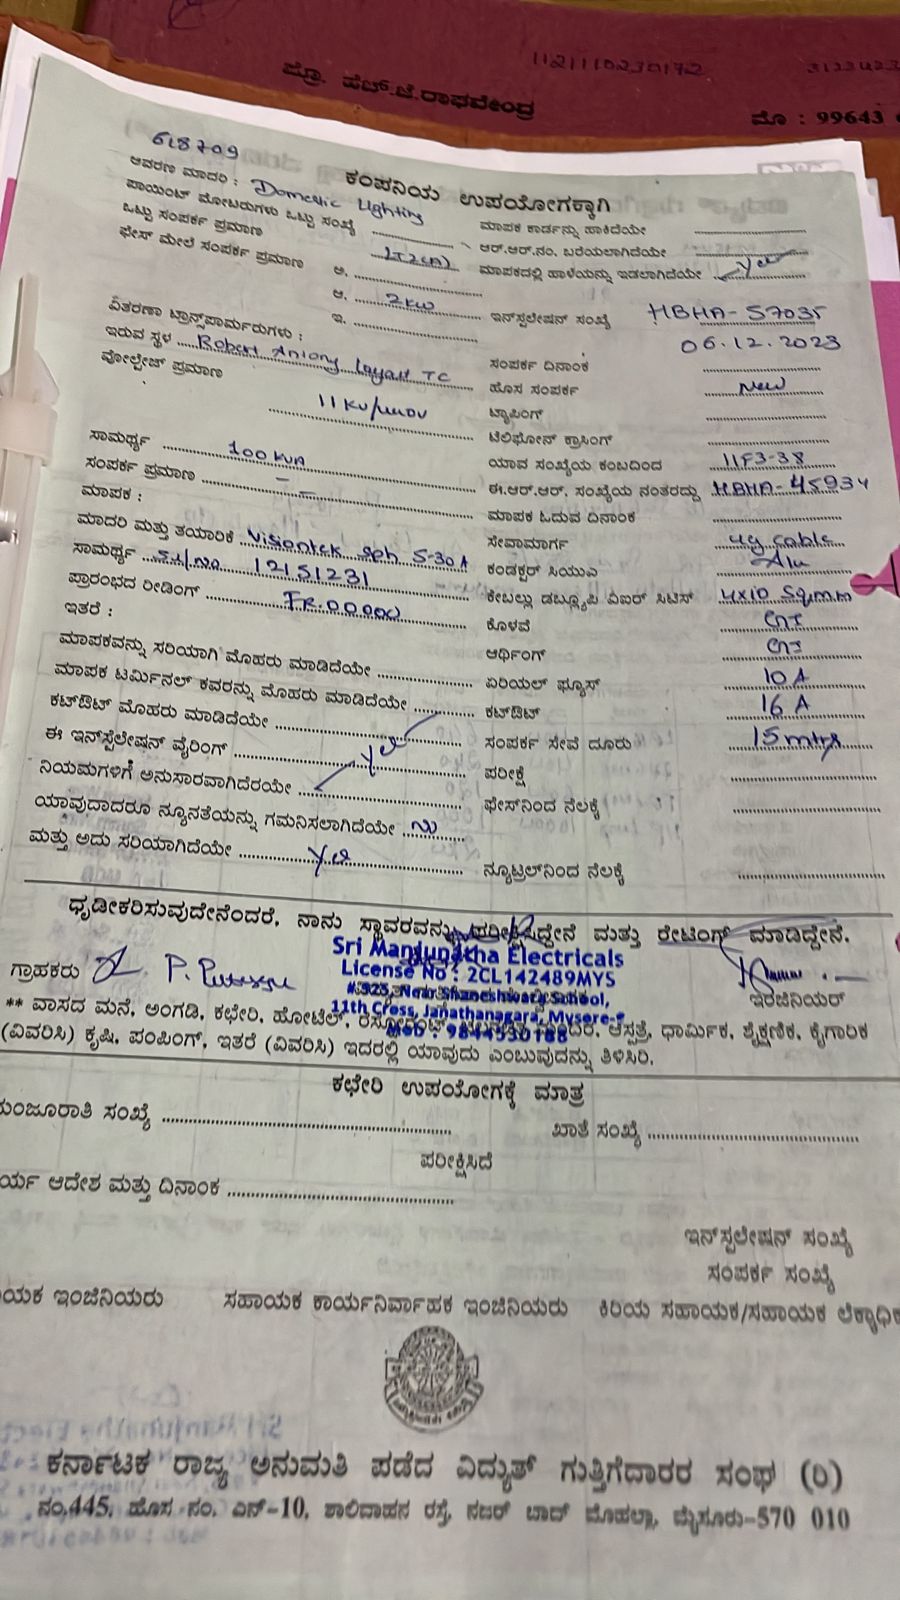 11211102301​72
ಪ್ರೊ. ಹೆಚ್.ಜೆ.ರಾಘವೇಂದ್ರ
ಮೊ : 99643
618709
ಕಂಪನಿಯ ಉಪಯೋಗಕ್ಕಾಗಿ
ಆವರಣ ಮಾದರಿ : Domestic Lighting
ಮಾಪಕ ಕಾರ್ಡನ್ನು ಹಾಕಿದೆಯೇ
ಪಾಯಿಂಟ್ ಮೋಟರುಗಳು ಒಟ್ಟು ಸಂಖ್ಯೆ
ಆರ್.ಆರ್.ನಂ. ಬರೆಯಲಾಗಿದೆಯೇ
ಒಟ್ಟು ಸಂಪರ್ಕ ಪ್ರಮಾಣ LT2(A)
ಮಾಪಕದಲ್ಲಿ ಹಾಳೆಯನ್ನು ಇಡಲಾಗಿದೆಯೇ Yes
ಫೇಸ್ ಮೇಲೆ ಸಂಪರ್ಕ ಪ್ರಮಾಣ ಅ.
ಆ. 2KW
ಇ.
ಇನ್‌ಸ್ಟಲೇಷನ್ ಸಂಖ್ಯೆ HBHA-57035
ವಿತರಣಾ ಟ್ರಾನ್ಸ್‌ಪಾರ್ಮರುಗಳು :
ಸಂಪರ್ಕ ದಿನಾಂಕ 06.12.2023
ಇರುವ ಸ್ಥಳ Robert Antony Layout TC
ಹೊಸ ಸಂಪರ್ಕ New
ವೋಲ್ಟೇಜ್ ಪ್ರಮಾಣ
ಟ್ಯಾಪಿಂಗ್
ಟೆಲಿಫೋನ್ ಕ್ರಾಸಿಂಗ್
ಸಾಮರ್ಥ್ಯ 100 KVA
ಯಾವ ಸಂಖ್ಯೆಯ ಕಂಬದಿಂದ 11F3-38
ಸಂಪರ್ಕ ಪ್ರಮಾಣ
ಈ.ಆರ್.ಆರ್. ಸಂಖ್ಯೆಯ ನಂತರದ್ದು HBHA-45934
ಮಾಪಕ :
ಮಾಪಕ ಓದುವ ದಿನಾಂಕ
ಮಾದರಿ ಮತ್ತು ತಯಾರಿಕೆ Visiontek 5-30A
ಸೇವಾಮಾರ್ಗ ug cable
ಸಾಮರ್ಥ್ಯ SL/No 12151231
ಕಂಡಕ್ಟರ್ ಸಿಯುಎ Alu
ಪ್ರಾರಂಭದ ರೀಡಿಂಗ್ FR.00000
ಕೇಬಲ್ಲು ಡಬ್ಲ್ಯೂಪಿ ವಿಐಆರ್ ಸಿಟಿಸ್ 4x10 Sqmm
ಇತರೆ :
ಕೊಳವೆ
ಮಾಪಕವನ್ನು ಸರಿಯಾಗಿ ಮೊಹರು ಮಾಡಿದೆಯೇ
ಆರ್ಥಿಂಗ್
ಮಾಪಕ ಟರ್ಮಿನಲ್ ಕವರನ್ನು ಮೊಹರು ಮಾಡಿದೆಯೇ
ಏರಿಯಲ್ ಫ್ಯೂಸ್ 10 A
ಕಟ್‌ಔಟ್ ಮೊಹರು ಮಾಡಿದೆಯೇ
ಕಟ್‌ಔಟ್ 16 A
ಈ ಇನ್‌ಸ್ಟೆಲೇಷನ್ ವೈರಿಂಗ್ Yes
ಸಂಪರ್ಕ ಸೇವೆ ದೂರು 15 mtrs
ನಿಯಮಗಳಿಗೆ ಅನುಸಾರವಾಗಿದೆರಯೇ
ಪರೀಕ್ಷೆ
ಯಾವುದಾದರೂ ನ್ಯೂನತೆಯನ್ನು ಗಮನಿಸಲಾಗಿದೆಯೇ No
ಫೇಸ್‌ನಿಂದ ನೆಲಕ್ಕೆ
ಮತ್ತು ಅದು ಸರಿಯಾಗಿದೆಯೇ Yes
ನ್ಯೂಟ್ರಲ್‌ನಿಂದ ನೆಲಕ್ಕೆ
ಧೃಡೀಕರಿಸುವುದೇನೆಂದರೆ, ನಾನು ಸ್ಥಾವರವನ್ನು ಪರೀಕ್ಷಿಸಿದ್ದೇನೆ ಮತ್ತು ರೇಟಿಂಗ್ ಮಾಡಿದ್ದೇನೆ.
Sri Manjunatha Electricals
License No : 2CL142489MYS
# 325, Near Shaneshwara School,
11th Cross, Janathanagara, Mysore-
Mob : 9844530188
ಗ್ರಾಹಕರು
ಇಂಜಿನಿಯರ್
** ವಾಸದ ಮನೆ, ಅಂಗಡಿ, ಕಛೇರಿ, ಹೋಟೆಲ್, ಆಸ್ಪತ್ರೆ, ಧಾರ್ಮಿಕ, ಶೈಕ್ಷಣಿಕ, ಕೈಗಾರಿಕ
(ವಿವರಿಸಿ) ಕೃಷಿ, ಪಂಪಿಂಗ್, ಇತರೆ (ವಿವರಿಸಿ) ಇದರಲ್ಲಿ ಯಾವುದು ಎಂಬುವುದನ್ನು ತಿಳಿಸಿರಿ.
ಕಛೇರಿ ಉಪಯೋಗಕ್ಕೆ ಮಾತ್ರ
ಮಂಜೂರಾತಿ ಸಂಖ್ಯೆ
ಖಾತೆ ಸಂಖ್ಯೆ
ಪರೀಕ್ಷಿಸಿದೆ
ರ್ಯ ಆದೇಶ ಮತ್ತು ದಿನಾಂಕ
ಇನ್‌ಸ್ಟಲೇಷನ್ ಸಂಖ್ಯೆ
ಸಂಪರ್ಕ ಸಂಖ್ಯೆ
ಯಕ ಇಂಜಿನಿಯರು ಸಹಾಯಕ ಕಾರ್ಯನಿರ್ವಾಹಕ ಇಂಜಿನಿಯರು ಕಿರಿಯ ಸಹಾಯಕ/ಸಹಾಯಕ ಲೆಕ್ಕಾಧಿಕ
ಕರ್ನಾಟಕ ರಾಜ್ಯ ಅನುಮತಿ ಪಡೆದ ವಿದ್ಯುತ್ ಗುತ್ತಿಗೆದಾರರ ಸಂಘ (ರಿ)
ನಂ.445, ಹೊಸ ನಂ. ಎನ್-10, ಶಾಲಿವಾಹನ ರಸ್ತೆ, ನಜರ್ ಬಾದ್ ಮೊಹಲ್ಲಾ, ಮೈಸೂರು-570 010